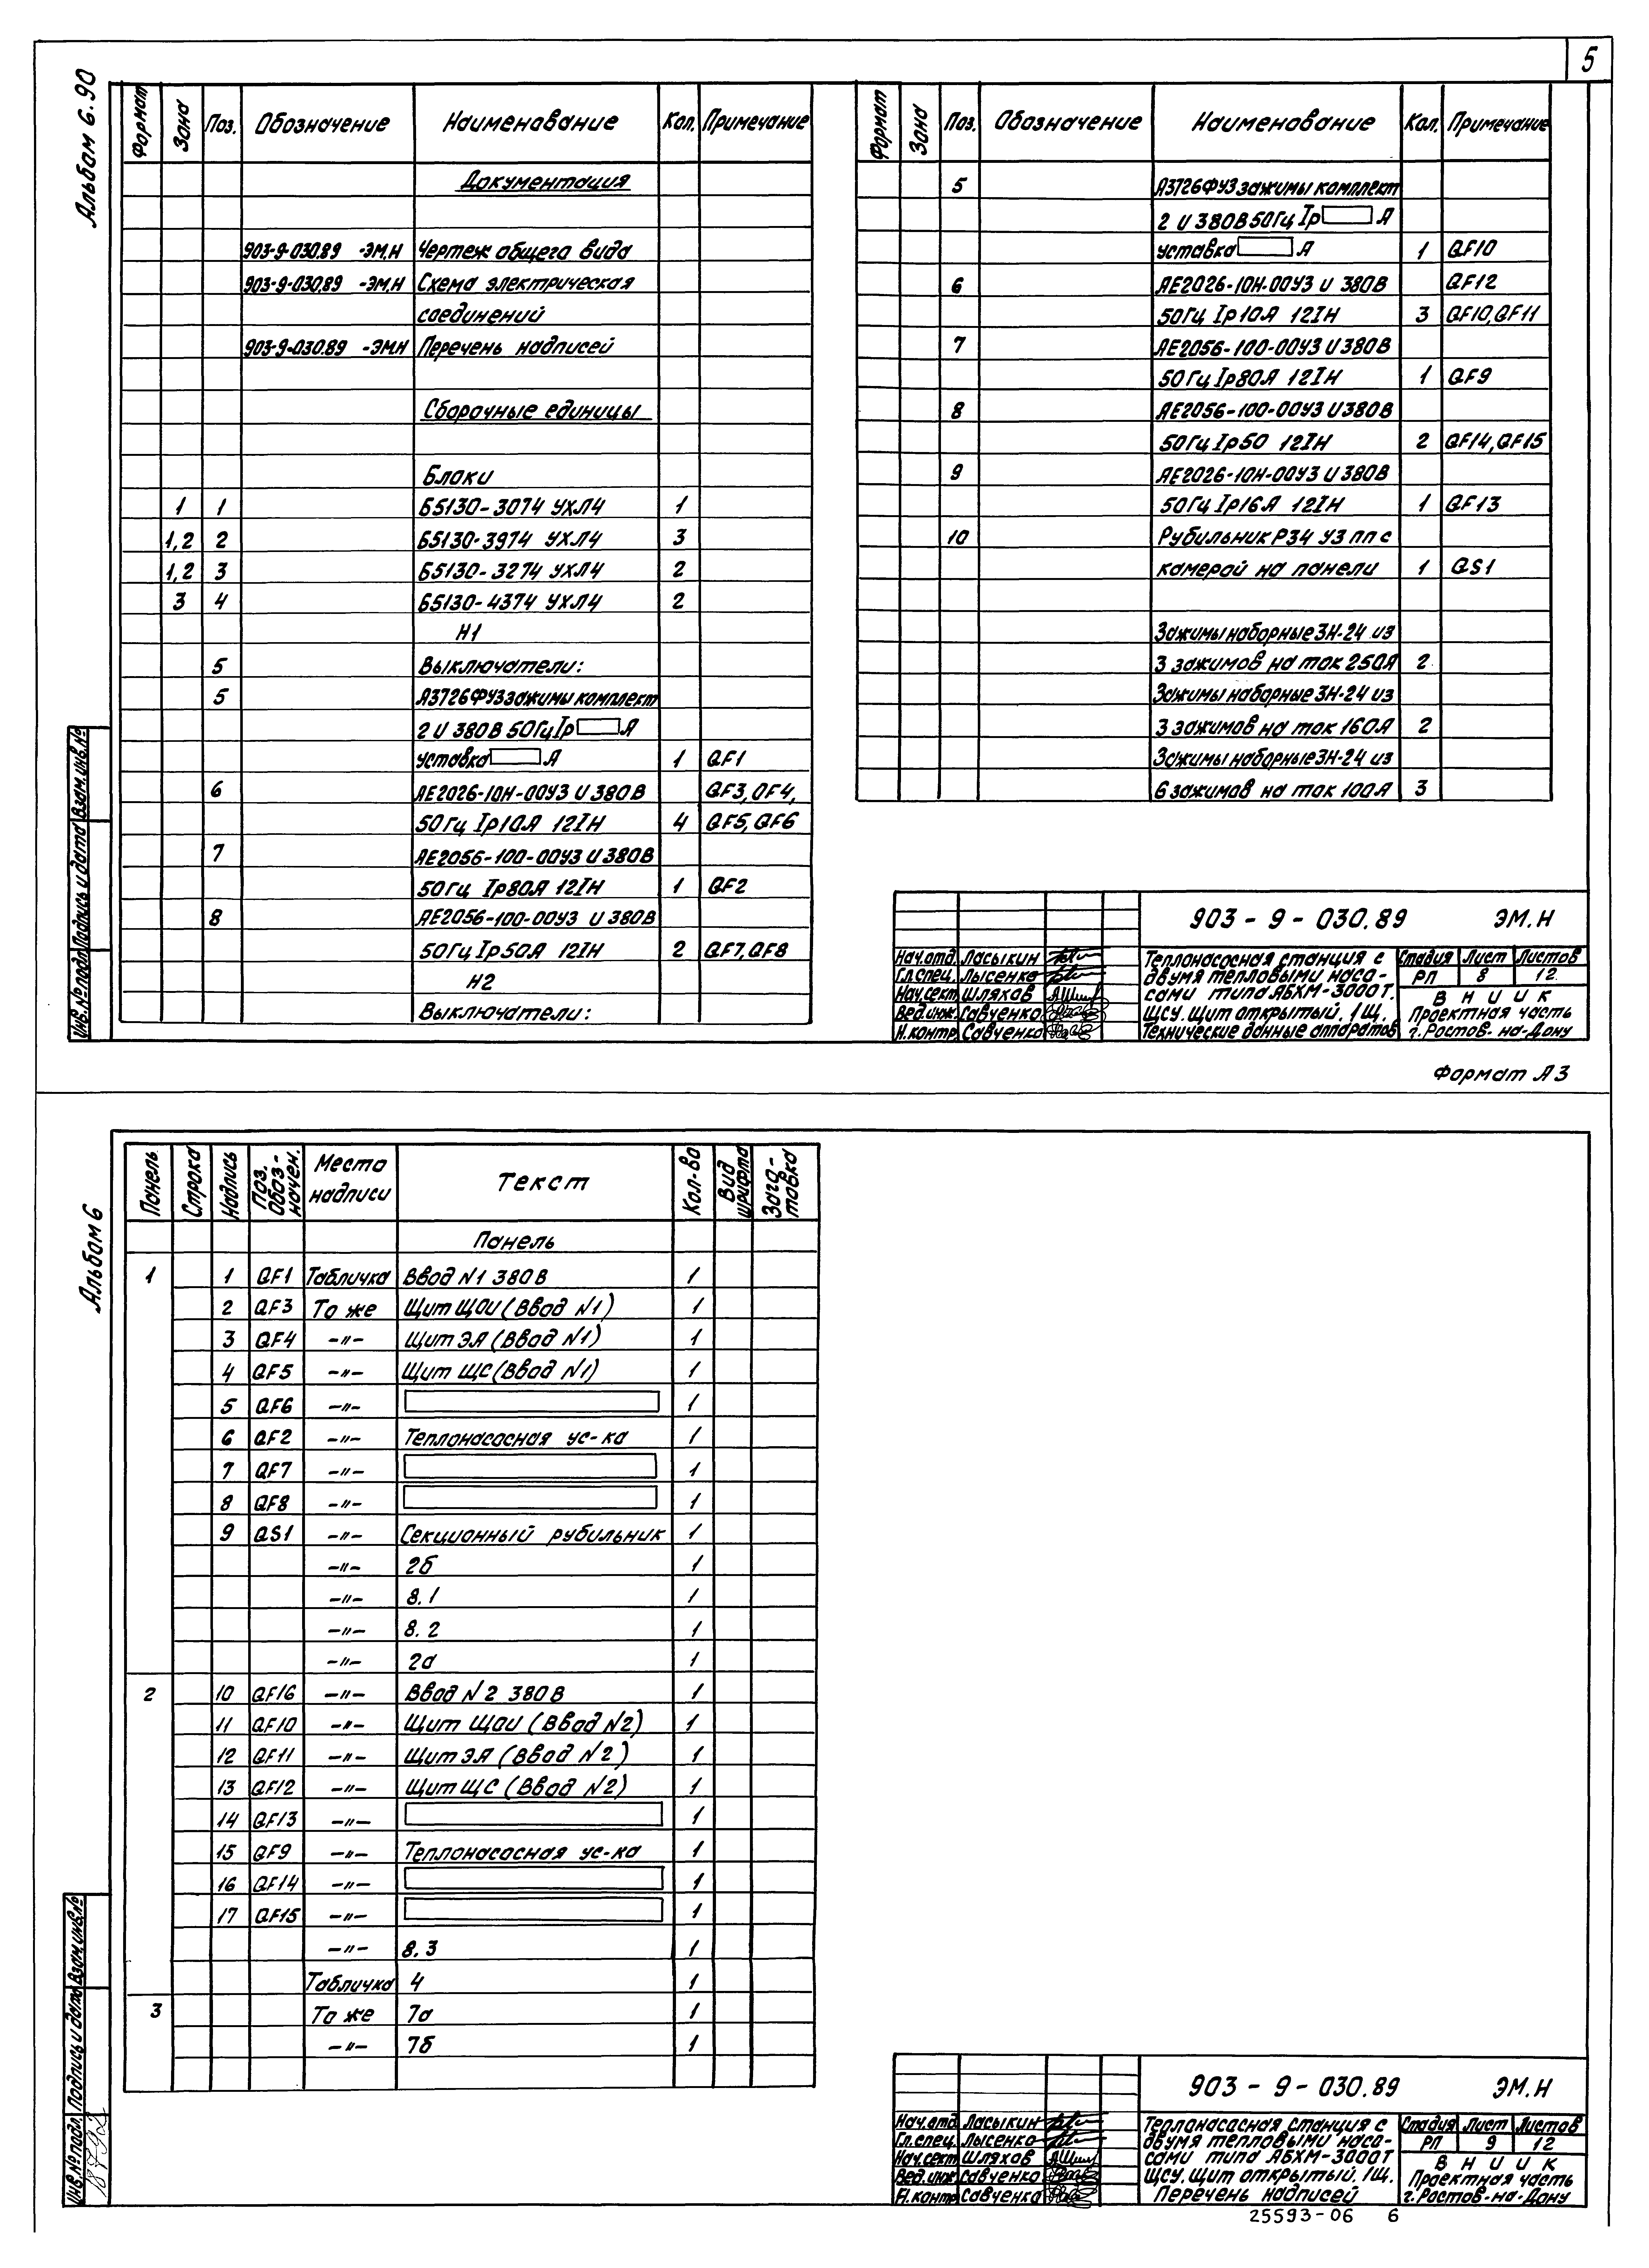 5
Альбом 6.90
Формат Зона Поз. Обозначение Наименование Кол. Примечание
Документация
903-9-030.89 -ЭМ.Н Чертеж общего вида
903-9-030.89 -ЭМ.Н Схема электрическая
соединений
903-9-030.89 -ЭМ.Н Перечень надписей
Сборочные единицы
Блоки
1 1 Б5130-3074 УХЛ4 1
1,2 2 Б5130-3974 УХЛ4 3
1,2 3 Б5130-3274 УХЛ4 2
3 4 Б5130-4374 УХЛ4 2
Н1
5 Выключатели:
5 А3726ФУ3 зажимы комплект
2 U 380В 50Гц Iр А
уставка А 1 QF1
6 АЕ2026-10Н-00У3 U 380В QF3, QF4,
50Гц Iр10А 12Iн 4 QF5, QF6
7 АЕ2056-100-00У3 U 380В
50Гц Iр80А 12Iн 1 QF2
8 АЕ2056-100-00У3 U 380В
50Гц Iр50А 12Iн 2 QF7, QF8
Н2
Выключатели:
Формат Зона Поз. Обозначение Наименование Кол. Примечание
5 А3726ФУ3 зажимы комплект
2 U 380В 50Гц Iр А
уставка А 1 QF10
6 АЕ2026-10Н-00У3 U 380В QF12
50Гц Iр10А 12Iн 3 QF10, QF11
7 АЕ2056-100-00У3 U 380В
50Гц Iр80А 12Iн 1 QF9
8 АЕ2056-100-00У3 U 380В
50Гц Iр50 12Iн 2 QF14, QF15
9 АЕ2026-10Н-00У3 U 380В
50Гц Iр16А 12Iн 1 QF13
10 Рубильник Р34 У3 пп с
камерой на панели 1 QS1
Зажимы наборные ЗН-24 из
3 зажимов на ток 250А 2
Зажимы наборные ЗН-24 из
3 зажимов на ток 160А 2
Зажимы наборные ЗН-24 из
6 зажимов на ток 100А 3
Инв.№подл. Подпись и дата Взам.инв.№
903-9-030.89 ЭМ.Н
Нач.отд. Ласыкин
Гл.спец. Лысенко
Нач.сект. Шляхов
Вед.инж. Савченко
Н.контр. Савченко
Теплонасосная станция с
двумя тепловыми насо-
сами типа АБХМ-3000Т.
ЩСУ. Щит открытый. 1Щ.
Технические данные аппаратов
Стадия Лист Листов
РП 8 12
ВНИИК
Проектная часть
г. Ростов-на-Дону
Формат А3
Альбом 6
Панель Строка Надпись Поз. Обоз-начен. Место надписи Текст Кол-во Вид шрифта Заго-товка
Панель
1 1 QF1 Табличка Ввод N1 380В 1
2 QF3 То же Щит ЩОИ (Ввод N1) 1
3 QF4 -"- Щит ЭА (Ввод N1) 1
4 QF5 -"- Щит ЩС (Ввод N1) 1
5 QF6 -"- 1
6 QF2 -"- Теплонасосная ус-ка 1
7 QF7 -"- 1
8 QF8 -"- 1
9 QS1 -"- Секционный рубильник 1
-"- 2б 1
-"- 8.1 1
-"- 8.2 1
-"- 2а 1
2 10 QF16 -"- Ввод N2 380В 1
11 QF10 -"- Щит ЩОИ (Ввод N2) 1
12 QF11 -"- Щит ЭА (Ввод N2) 1
13 QF12 -"- Щит ЩС (Ввод N2) 1
14 QF13 -"- 1
15 QF9 -"- Теплонасосная ус-ка 1
16 QF14 -"- 1
17 QF15 -"- 1
-"- 8.3 1
Табличка 4 1
3 То же 7а 1
-"- 7б 1
Инв.№подл. Подпись и дата Взам.инв.№
903-9-030.89 ЭМ.Н
Нач.отд. Ласыкин
Гл.спец. Лысенко
Нач.сект. Шляхов
Вед.инж. Савченко
Н.контр. Савченко
Теплонасосная станция с
двумя тепловыми насо-
сами типа АБХМ-3000Т
ЩСУ. Щит открытый. 1Щ.
Перечень надписей
Стадия Лист Листов
РП 9 12
ВНИИК
Проектная часть
г. Ростов-на-Дону
25593-06 6